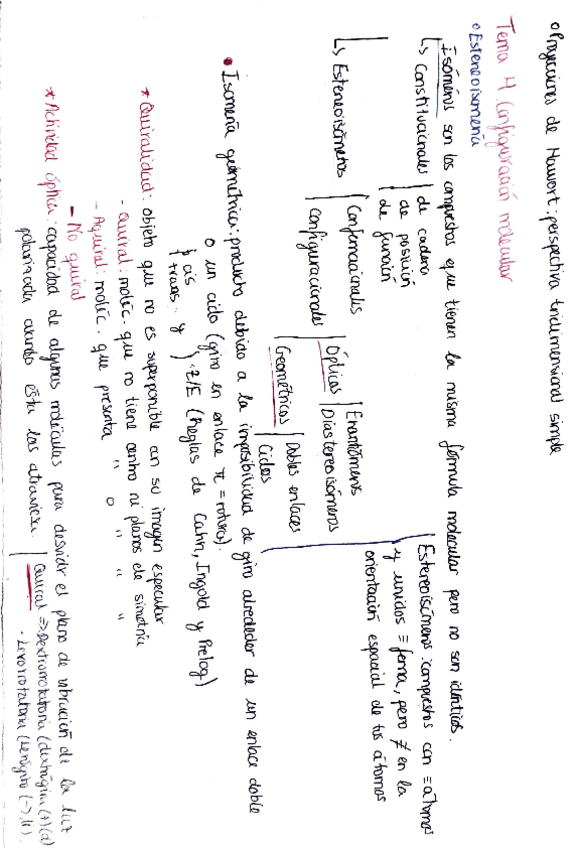 o Proyecciones de Hawort: perspectiva tridimensional simple
Tema 4 Configuración molecular
o Estereoisomería
Isómeros son los compuestos que tienen la misma fórmula molecular pero no son idénticos.
↳ Constitucionales | de cadena
de posición
de función
↳ Estereoisómeros | Conformacionales
Configuracionales | Ópticos | Enantiómeros
Diastereoisómeros
Geométricos | Dobles enlaces
Ciclos
Estereoisómeros: compuestos con = átomos
y unidos = forma, pero ≠ en la
orientación espacial de tus átomos
• Isomería geométrica: producto debido a la imposibilidad de giro alrededor de un enlace doble
o un ciclo (giro en enlace π = rotura).
cis y
trans. } · Z/E (Reglas de Cahn, Ingold y Prelog)
* Quiralidad: objeto que no es superponible con su imagen especular
- Quiral: moléc. que no tiene centro ni planos de simetría
- Aquiral: moléc. que presenta " o " " "
- No quiral
* Actividad óptica: capacidad de algunas moléculas para desviar el plano de vibración de la luz
polarizada cuando esta las atraviesa. | Quiral => Dextrorrotatoria (dextrógira (+)(d)
· Levorrotatoria (levógira (-), (l).